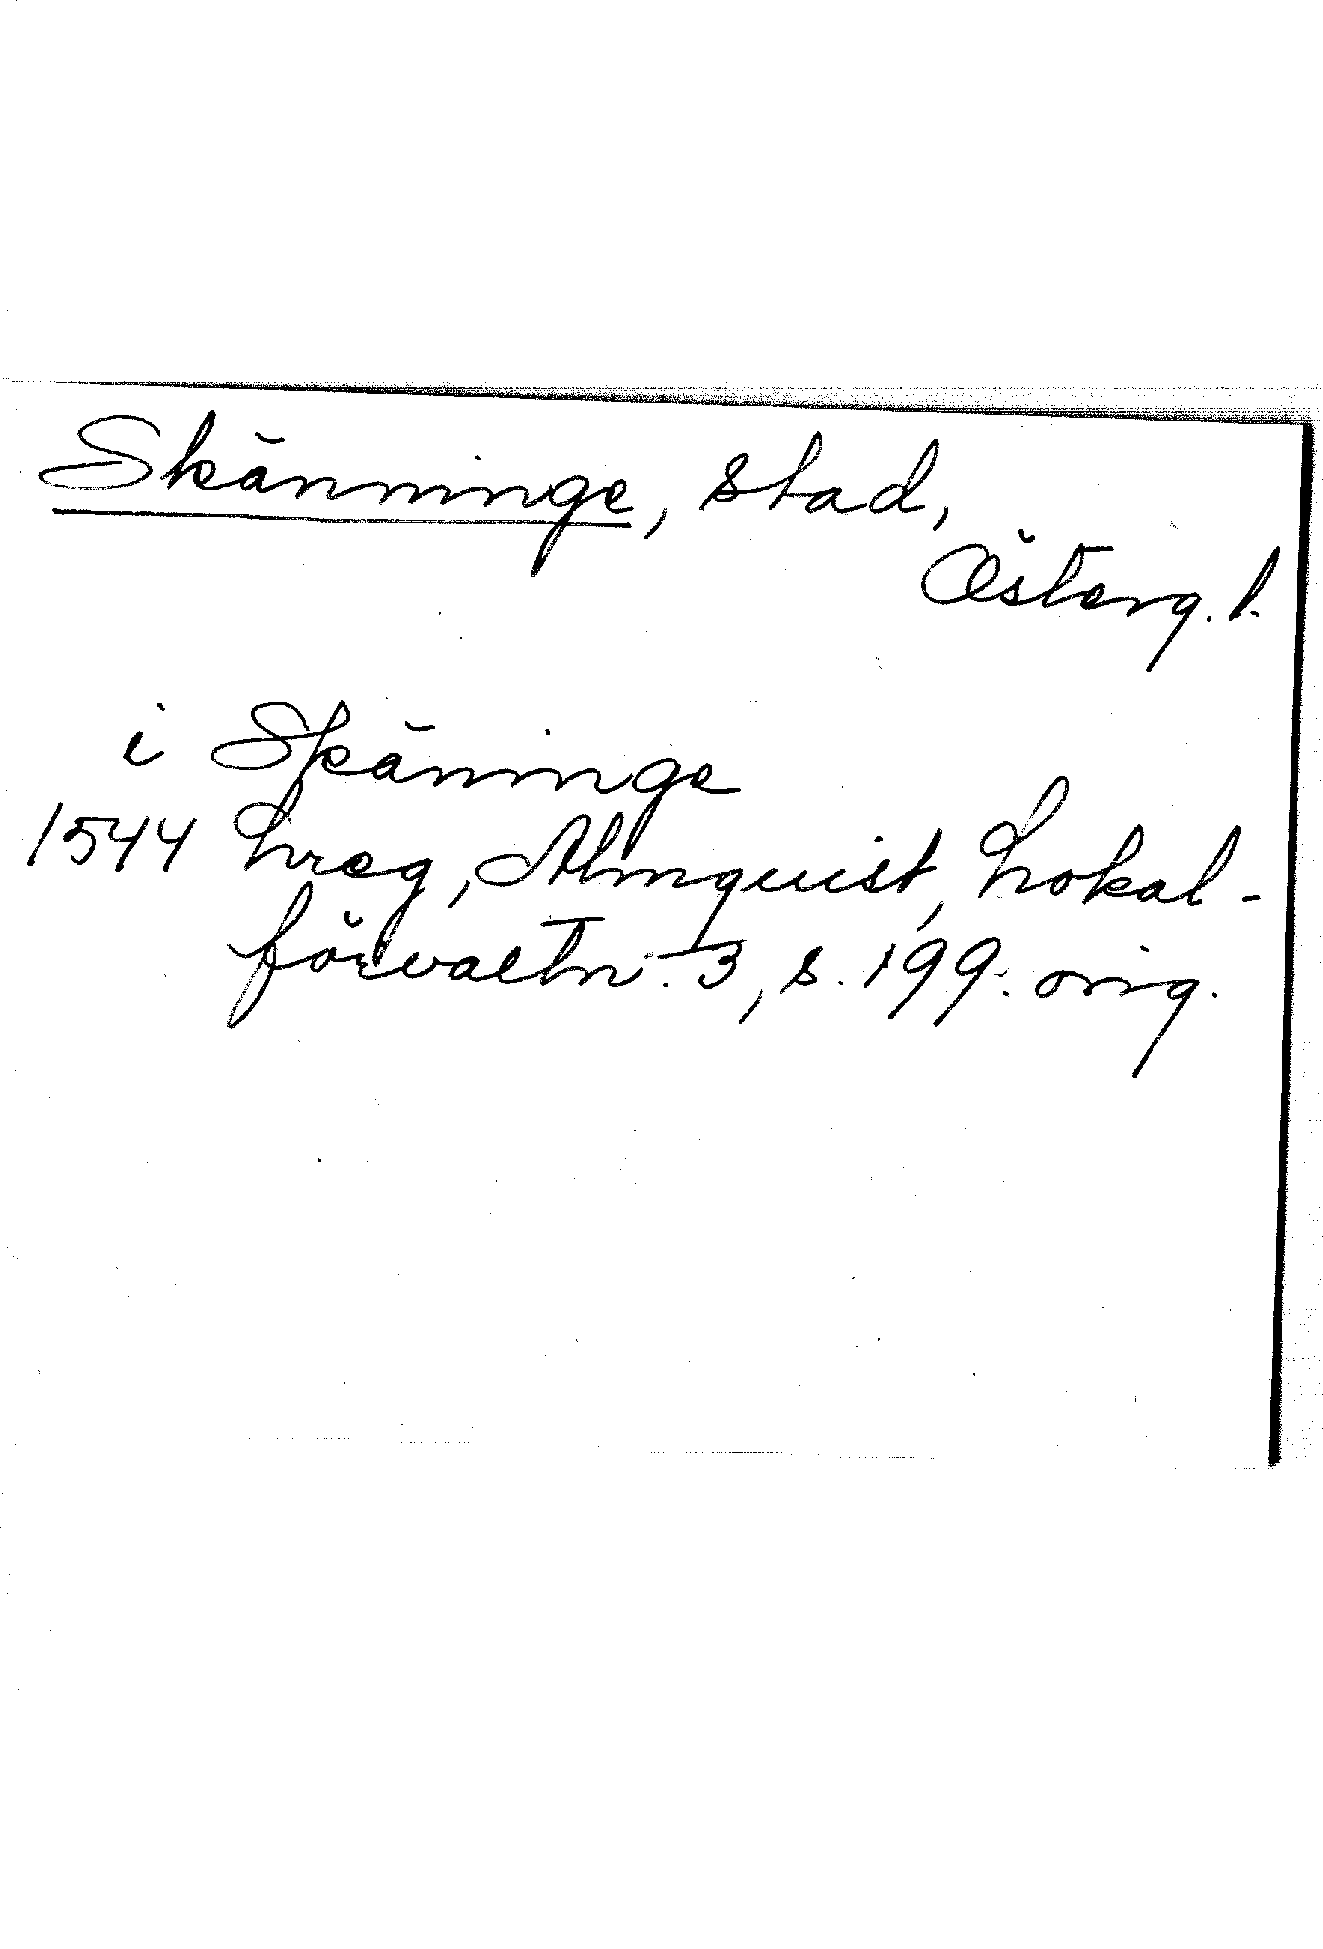 Skänninge, stad,
Österg. l.
i Skäninge
1544 Lreg, Almquist, Lokal-
förvaltn. 3, s. 199. orig.